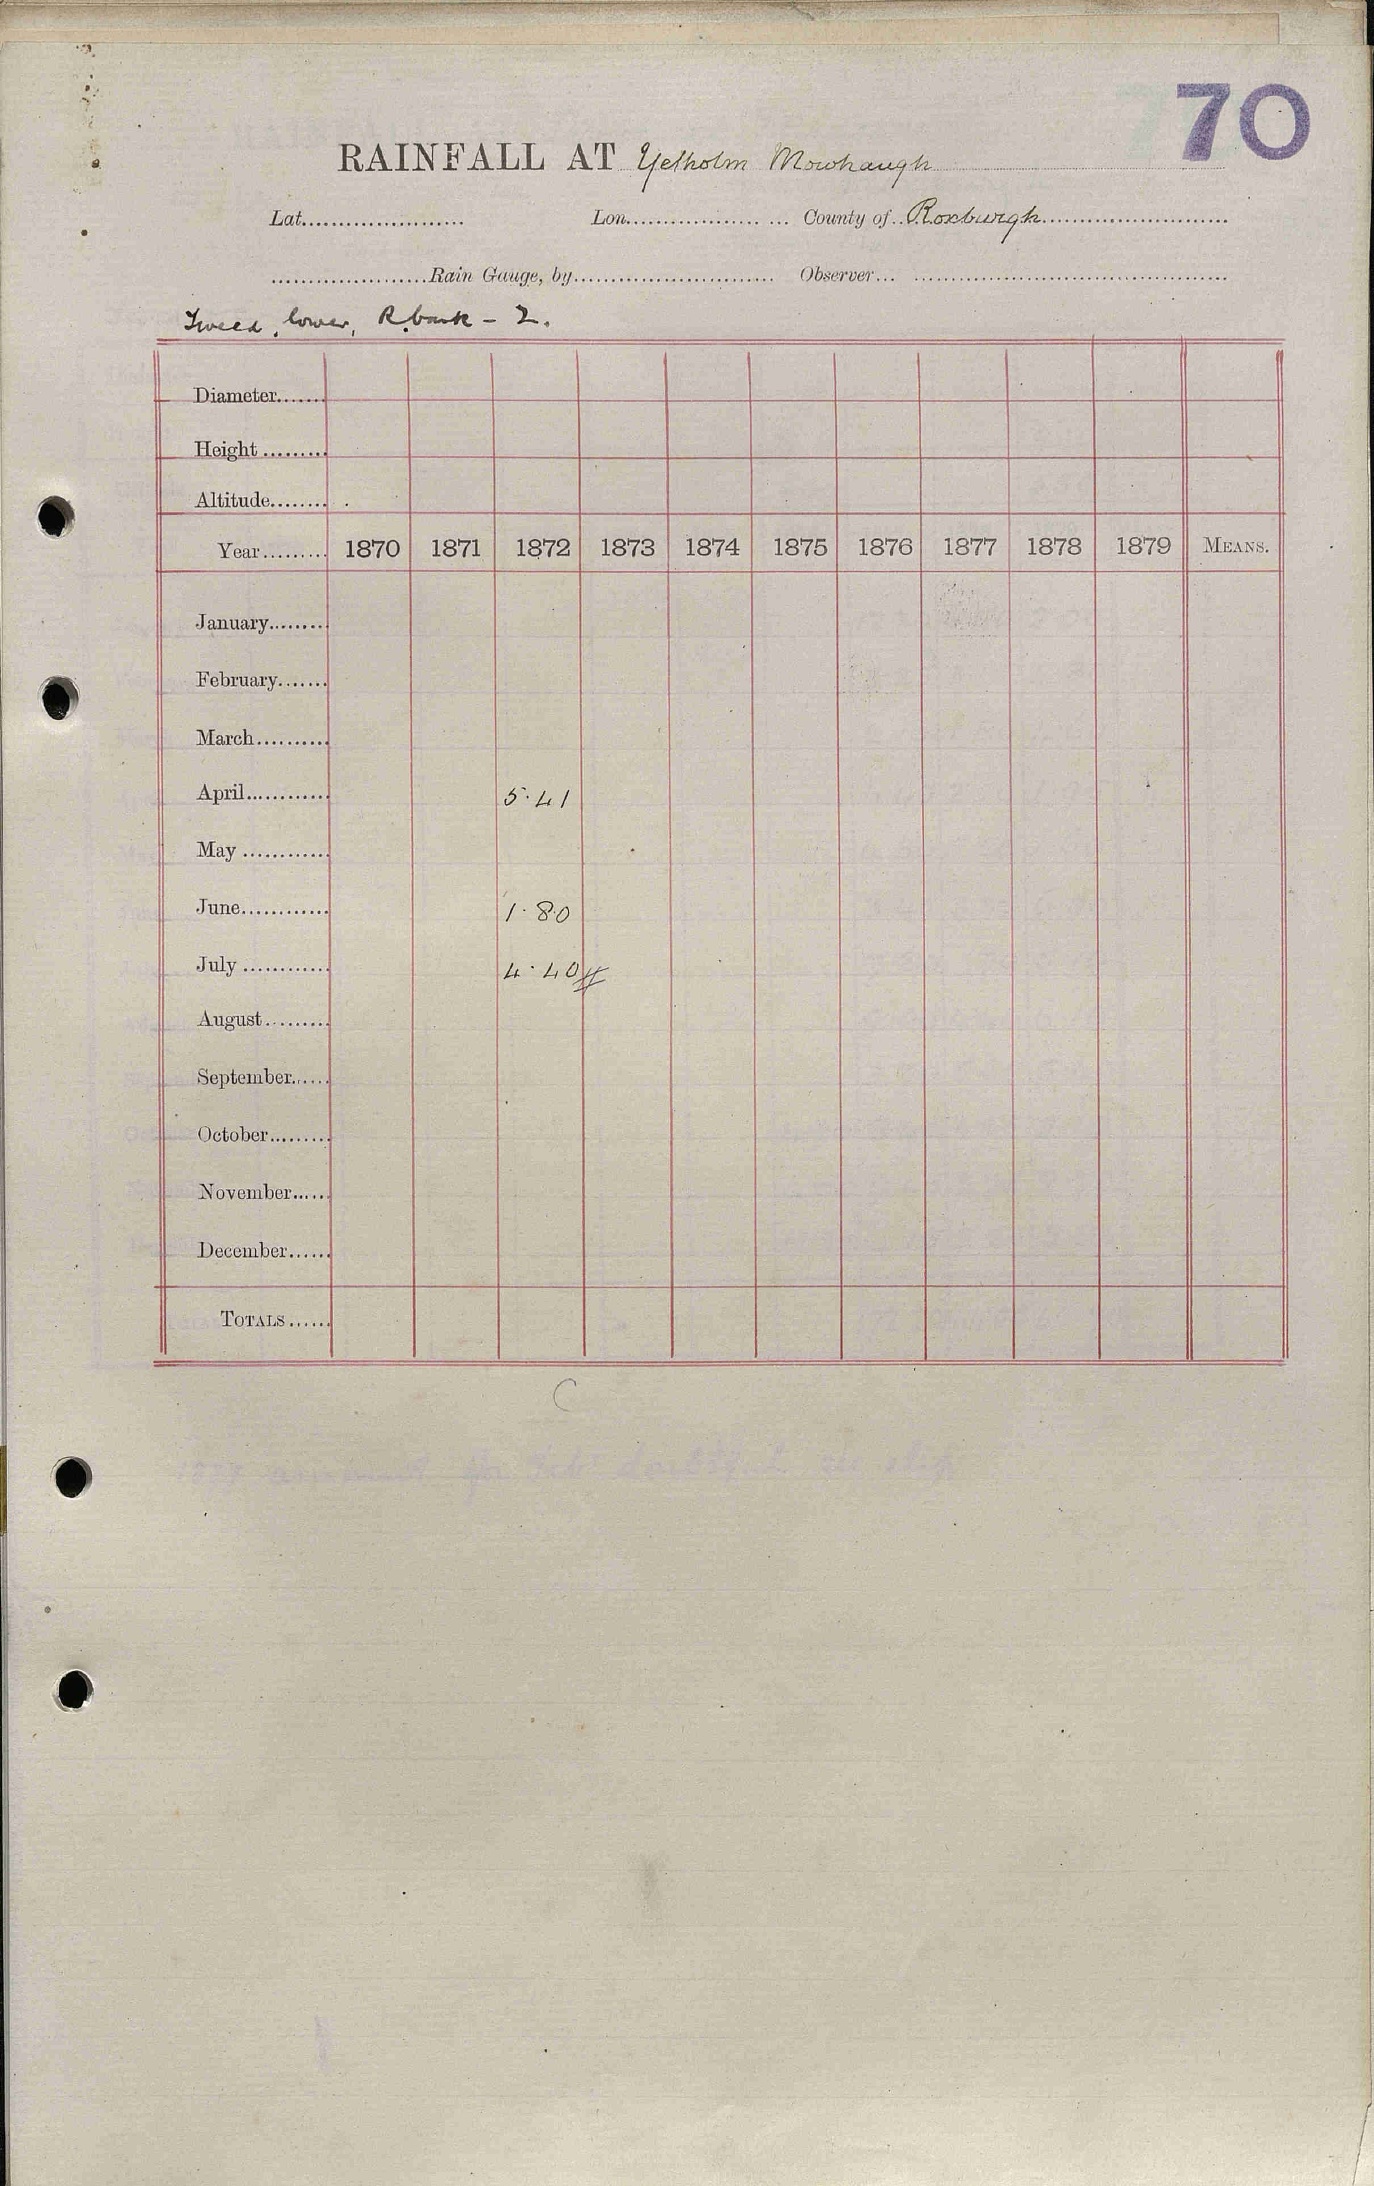 70
RAINFALL AT Yetholm Mowhaugh
Lat..................... Lon..................... County of Roxburgh
.....................Rain Gauge, by........................... Observer...
Tweed, lower, R. bank - 2.
Diameter.......
Height.........
Altitude........
Year......... 1870 1871 1872 1873 1874 1875 1876 1877 1878 1879 MEANS.
January........
February.......
March..........
April............ 5.41
May............
June............ 1.80
July............ 4.40
August.........
September......
October.........
November......
December......
TOTALS......
C